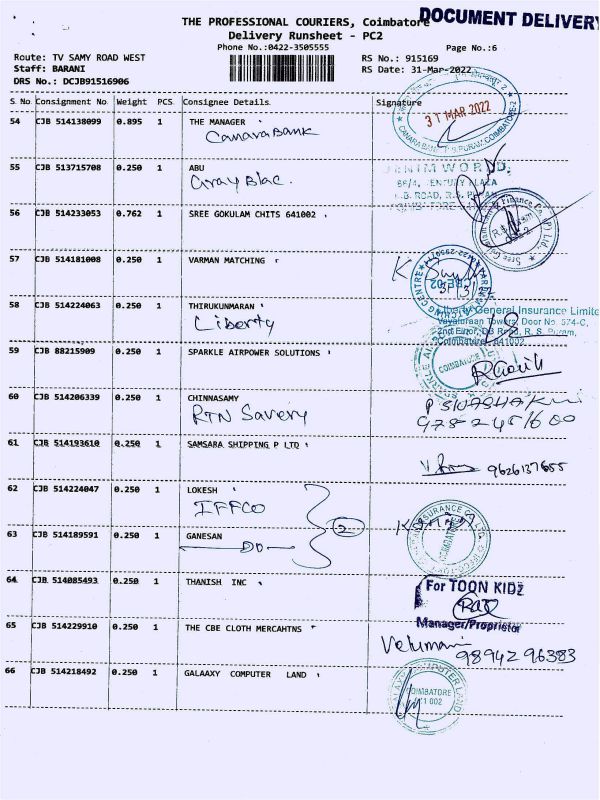 DOCUMENT DELIVERY
THE PROFESSIONAL COURIERS, Coimbatore
Delivery Runsheet - PC2
Phone No.:0422-3505555
Page No.:6
Route: TV SAMY ROAD WEST
RS No.: 915169
Staff: BARANI
RS Date: 31-Mar-2022
DRS No.: DCJB91516906
S No Consignment No Weight PCS Consignee Details Signature
54 CJB 514138099 0.895 1 THE MANAGER
Canara Bank
31 MAR 2022
CANARA BANK, R.S. PURAM, COIMBATORE-2
55 CJB 513715708 0.250 1 ABU
DENIM WORLD,
66/4, CENTURY PLAZA
D.B. ROAD, R.S. PURAM
56 CJB 514233053 0.762 1 SREE GOKULAM CHITS 641002
57 CJB 514181008 0.250 1 VARMAN MATCHING
58 CJB 514224063 0.250 1 THIRUKUNMARAN
Liberty
Liberty General Insurance Limited
Door No. 574-C,
2nd Floor, DB Road, R. S. Puram,
Coimbatore 641002
59 CJB 88215909 0.250 1 SPARKLE AIRPOWER SOLUTIONS
COIMBATORE
60 CJB 514206339 0.250 1 CHINNASAMY
61 CJB 514193610 0.250 1 SAMSARA SHIPPING P LTD
9626137655
62 CJB 514224047 0.250 1 LOKESH
IFFCO
2
63 CJB 514189591 0.250 1 GANESAN
DO
64 CJB 514085493 0.250 1 THANISH INC
For TOON KIDZ
Manager/Proprietor
65 CJB 514229910 0.250 1 THE CBE CLOTH MERCAHTNS
Velumani
98942 96383
66 CJB 514218492 0.250 1 GALAAXY COMPUTER LAND
COIMBATORE
641 002